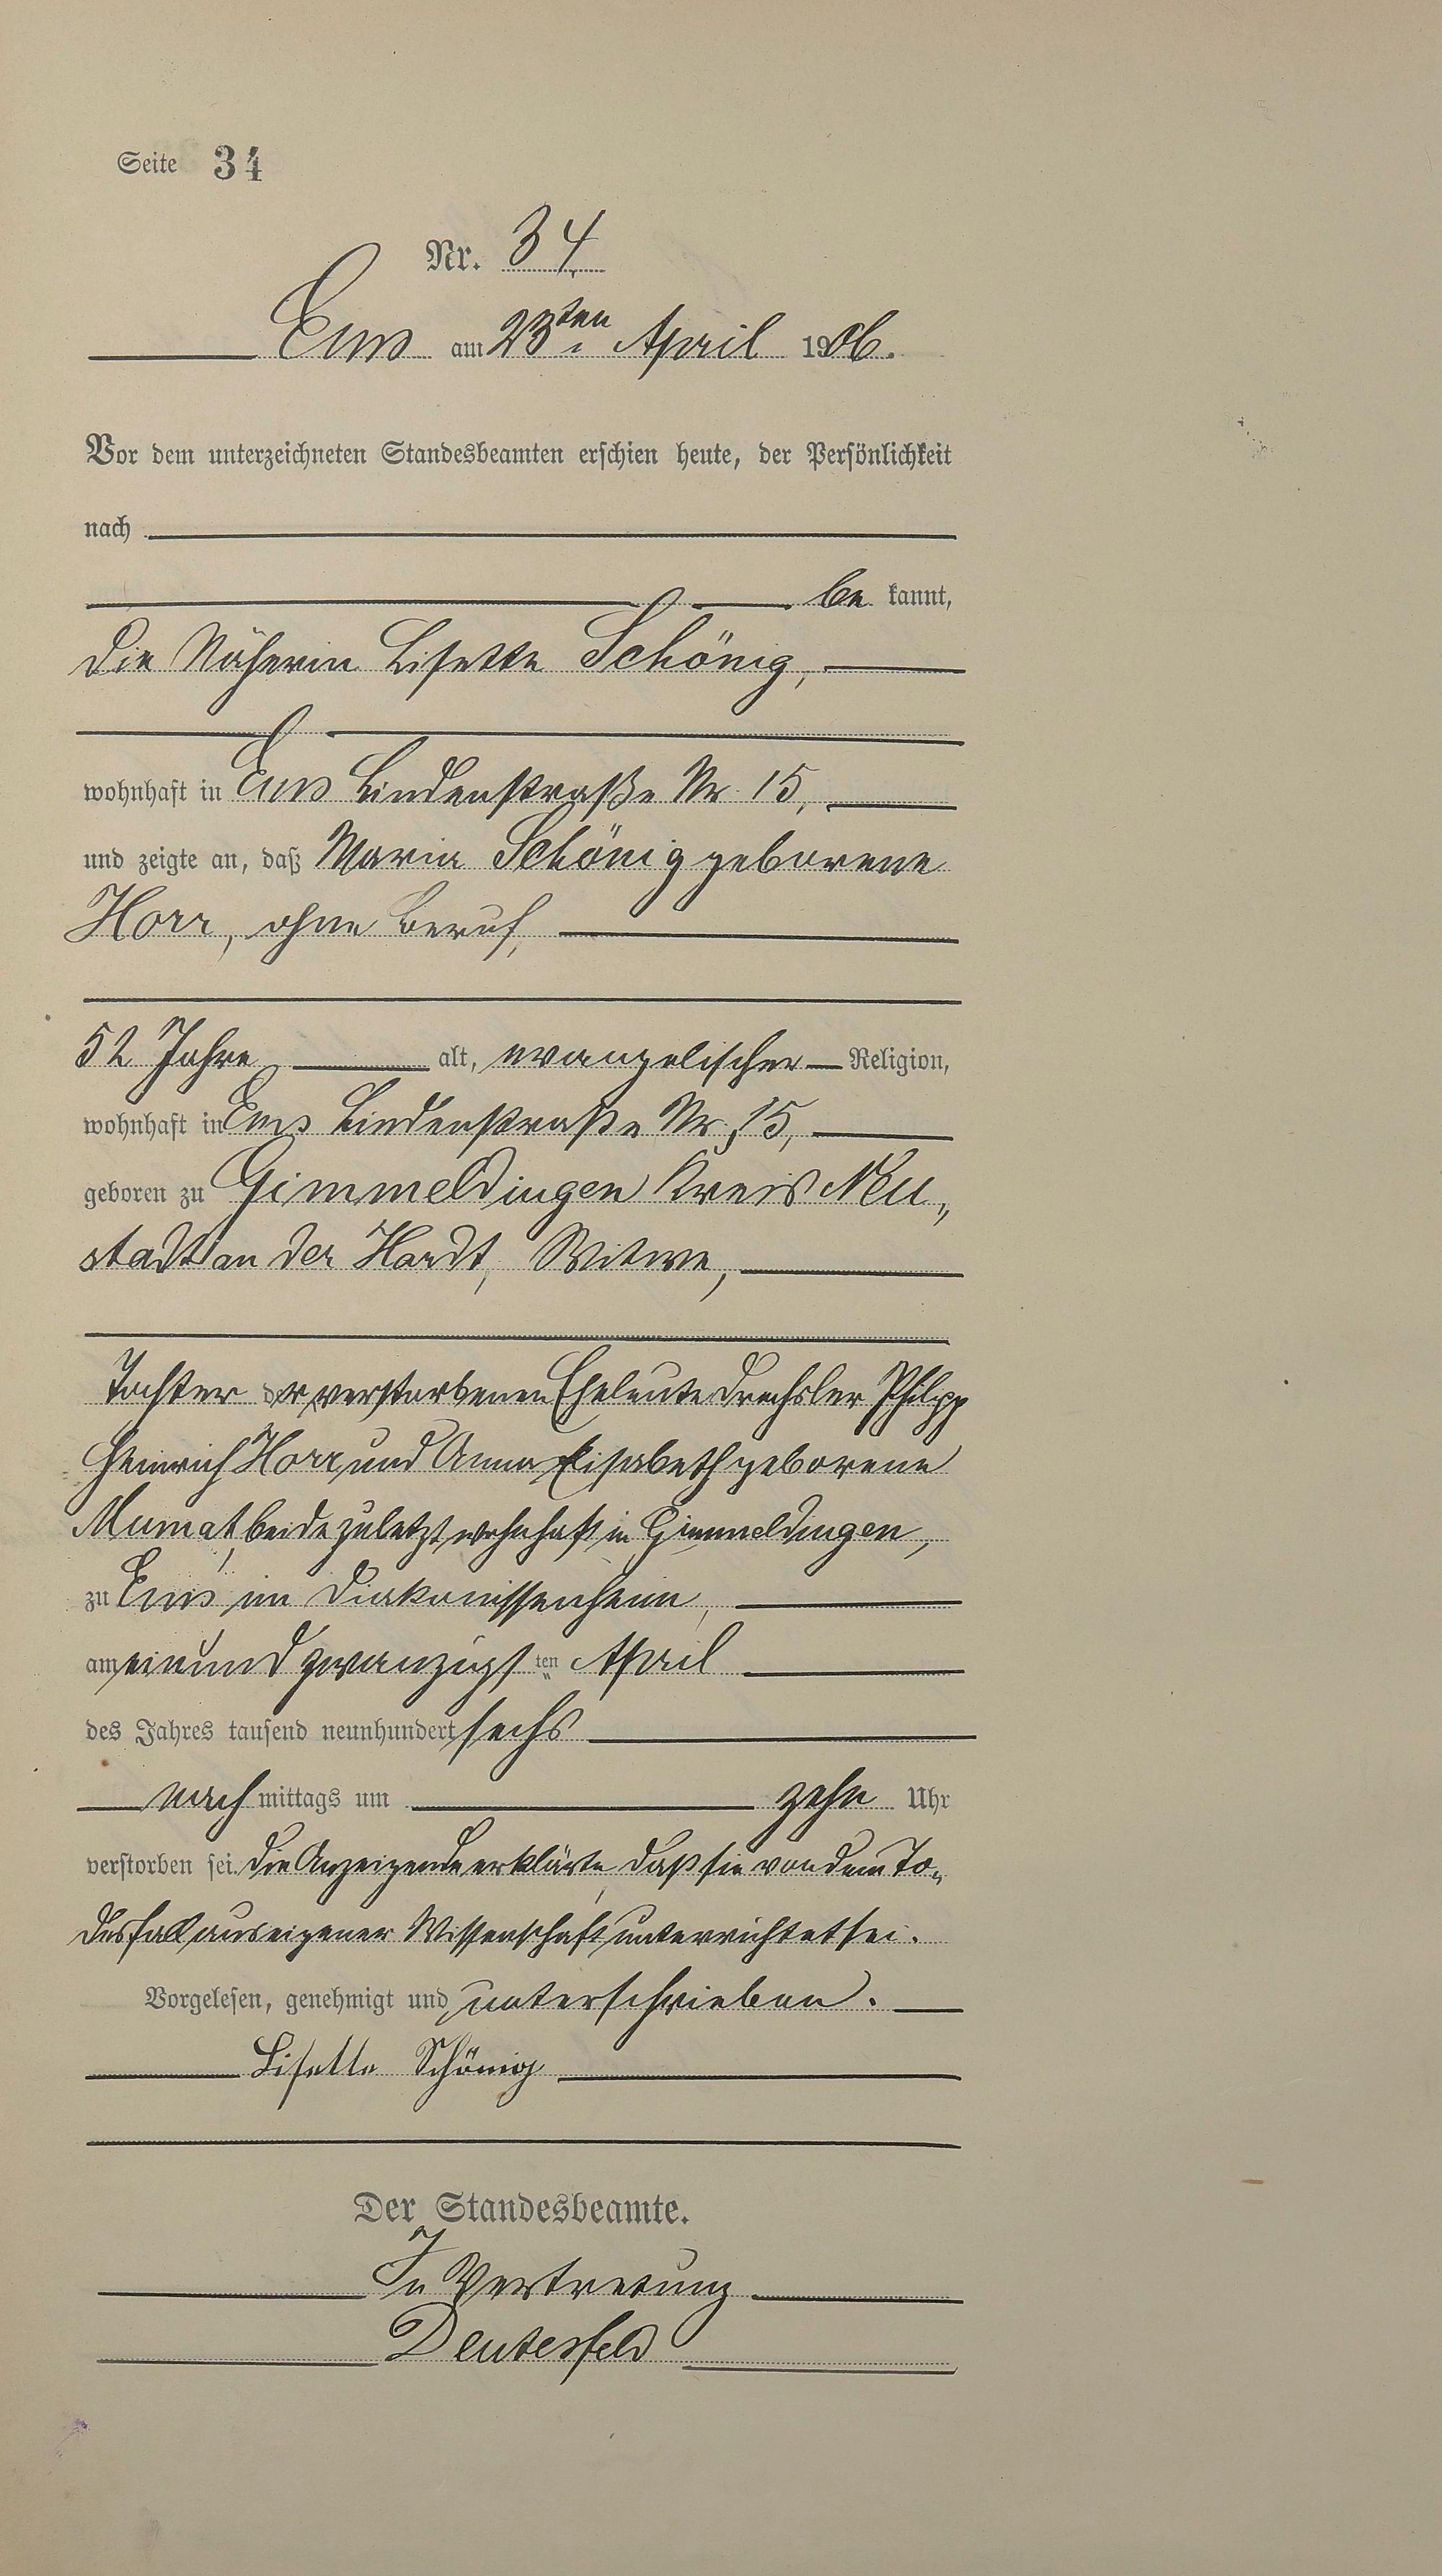 Seite 34
Nr. 34
Ems am 23ten April 1906.
Vor dem unterzeichneten Standesbeamten erschien heute, der Persönlichkeit
nach
be kannt,
die Näherin Lisette Schönig,
wohnhaft in Ems Lindenstraße Nr. 15,
und zeigte an, daß Maria Schönig geborene
Horr, ohne Beruf,
52 Jahre alt, evangelischer Religion,
wohnhaft in Ems Lindenstraße Nr. 15,
geboren zu Gimmeldingen Kreis Neu„
stadt an der Hardt, Witwe,
Tochter der verstorbenen Eheleute Drechsler Philipp
Heinrich Horr und Anna Elisabeth geborene
Mumat, beide zuletzt wohnhaft in Gimmeldingen,
zu Ems im Diakonissenheim,
am einundzwanzigsten April
des Jahres tausend neunhundert sechs
nach mittags um zehn Uhr
verstorben sei. Die Anzeigende erklärte, daß sie von dem To„
desfall aus eigener Wissenschaft unterrichtet sei.
Vorgelesen, genehmigt und unterschrieben.
Lisette Schönig
Der Standesbeamte.
In Vertretung
Deutesfeld